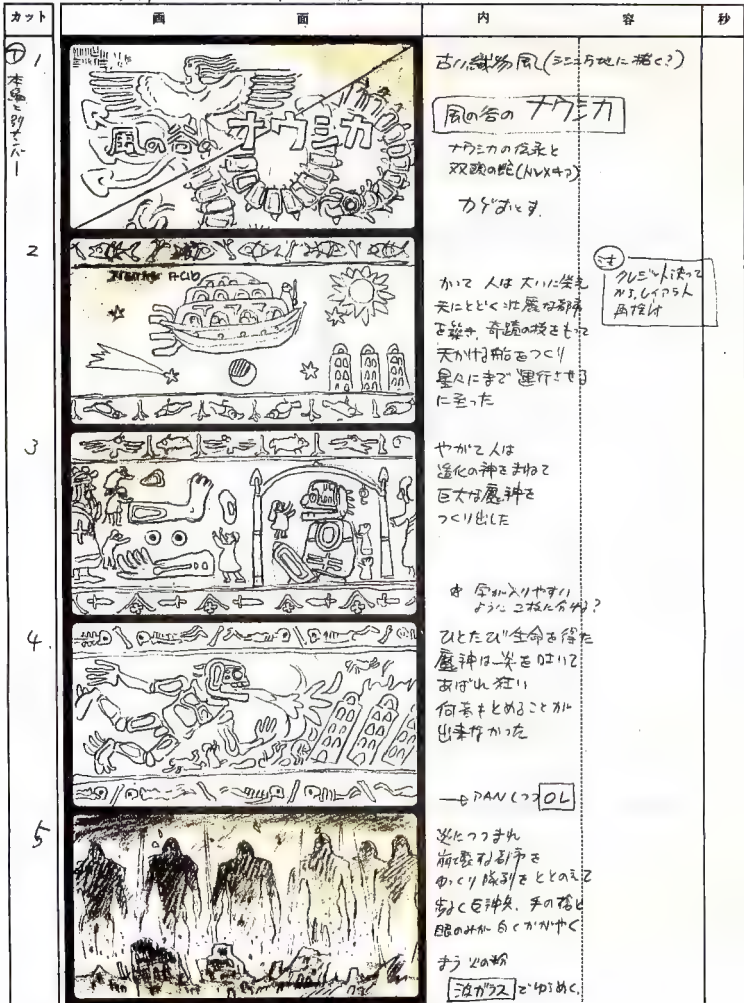 カット
画 面
内 容
秒
T
本編と別ナンバー
1
風の谷の
ナウシカ
古い織物風
風の谷の ナウシカ
ナウシカの伝承と
双頭の蛇
カゲおとす
2
かつて 人は 大いに栄え
天にとどく壮麗な都市
を築き、奇蹟の技をもって
天かける船をつくり
星々にまで運行させる
に至った
注
クレジット決って
から、レイアウト
再検討
3
やがて人は
造化の神をまねて
巨大な魔神を
つくり出した
字が入りやすい
ように 二枚に分ける?
4
ひとたび生命を得た
魔神は炎を吐いて
あばれ狂い
何者もとめることが
出来なかった
→PANしつつ OL
5
炎につつまれ
崩壊する都市を
ゆっくり隊列をととのえて
歩く巨神兵、手の槍と
眼のみが白くかがやく
まう火の粉
波ガラス でゆらめく。